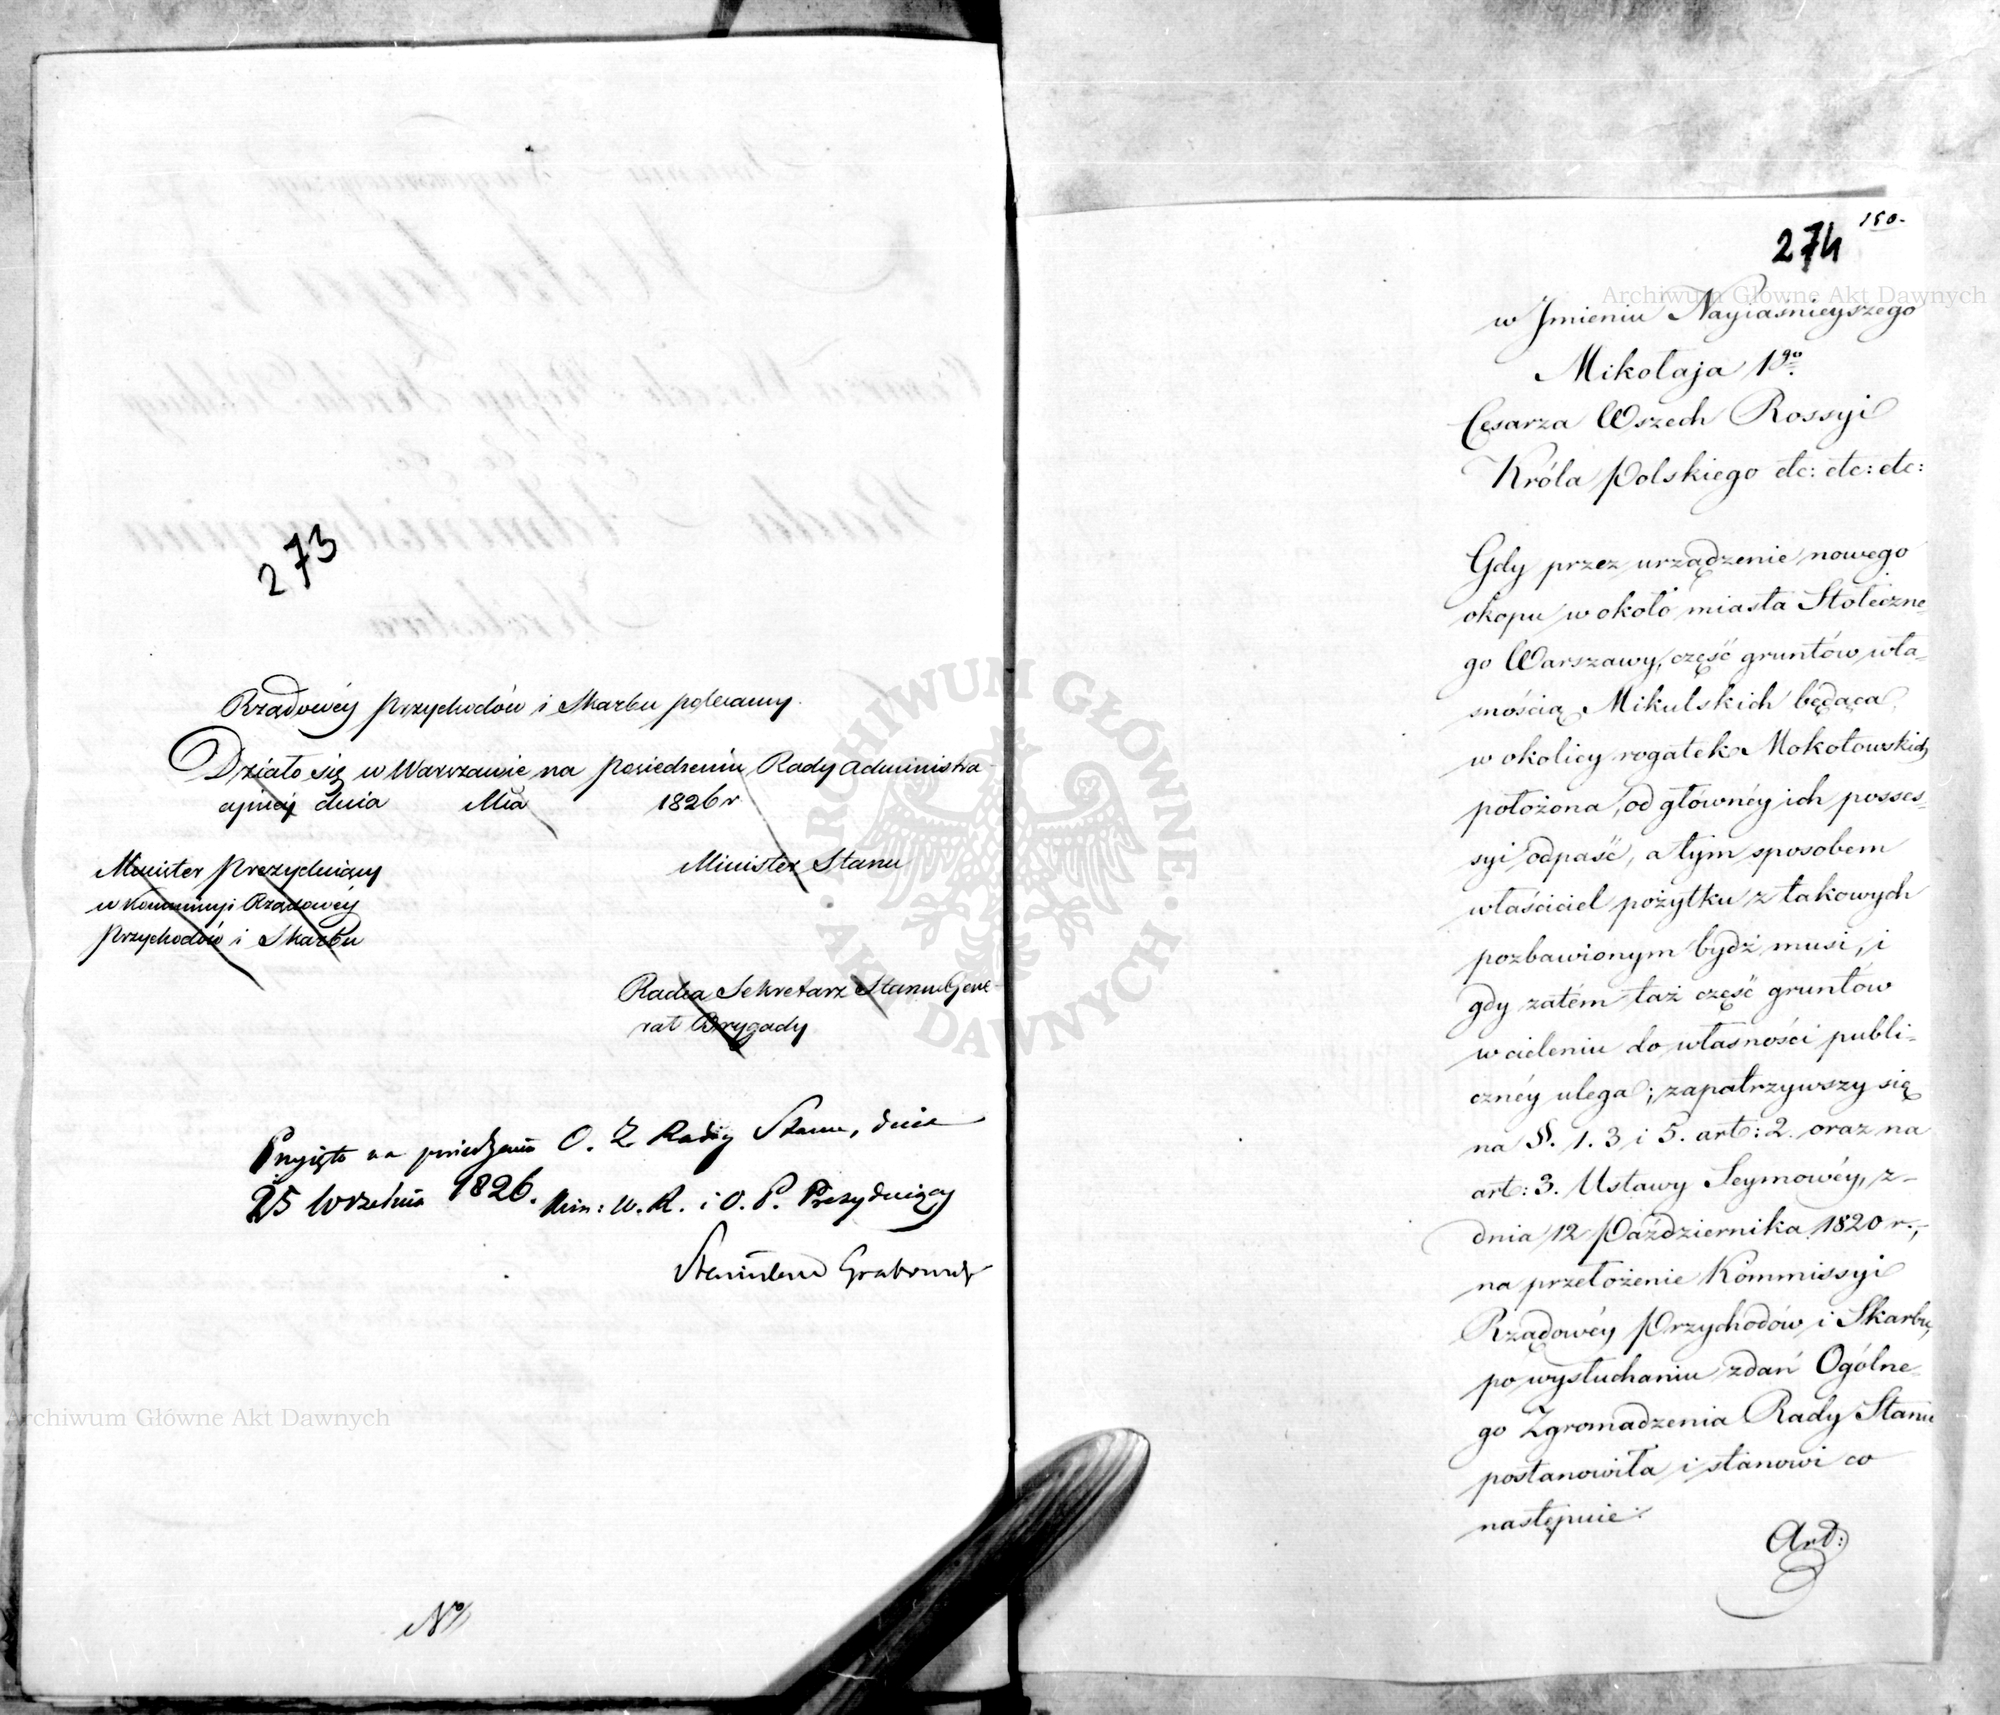 273
Rządowéy Przychodów i Skarbu polecamy.
Działo się w Warszawie na posiedzeniu Rady Administra-
cyinéj dnia Mca 1826 r
Minister Prezyduiący
w Kommissyi Rządowéy
Przychodów i Skarbu
Minister Stanu
Radca Sekretarz Stanu Gene-
rał Brygady
Przyięto na posiedzeniu O. Z. Rady Stanu, dnia
25 Września 1826. Min: W. R. i O. P. Prezyduiący
Stanisław Grabowski
No
150.
274
w Jmieniu Nayiaśnieyszego
Mikołaja 1go.
Cesarza Wszech Rossyi
Króla Polskiego etc: etc: etc:
Gdy przez urządzenie nowego
okopu w około miasta Stołeczne-
go Warszawy, część gruntów wła-
snością Mikulskich będąca,
w okolicy rogatek Mokotowskich
położona, od głównéy ich posses-
syi odpaść, a tym sposobem
właściciel pożytku z takowych
pozbawionym bydź musi, i
gdy zatém taż część gruntów
wcieleniu do własności publi-
cznéy ulega; zapatrzywszy się
na §. 1. 3 i 5. art: 2. oraz na
art: 3. Ustawy Seymowéy, z-
dnia 12 Października 1820 r.,
na przełożenie Kommissyi
Rządowéy Przychodów i Skarbu,
po wysłuchaniu zdań Ogólne-
go Zgromadzenia Rady Stanu
postanowiła i stanowi co
następuie:
Art:
Archiwum Główne Akt Dawnych
ARCHIWUM GŁÓWNE
AKT DAWNYCH
Archiwum Główne Akt Dawnych